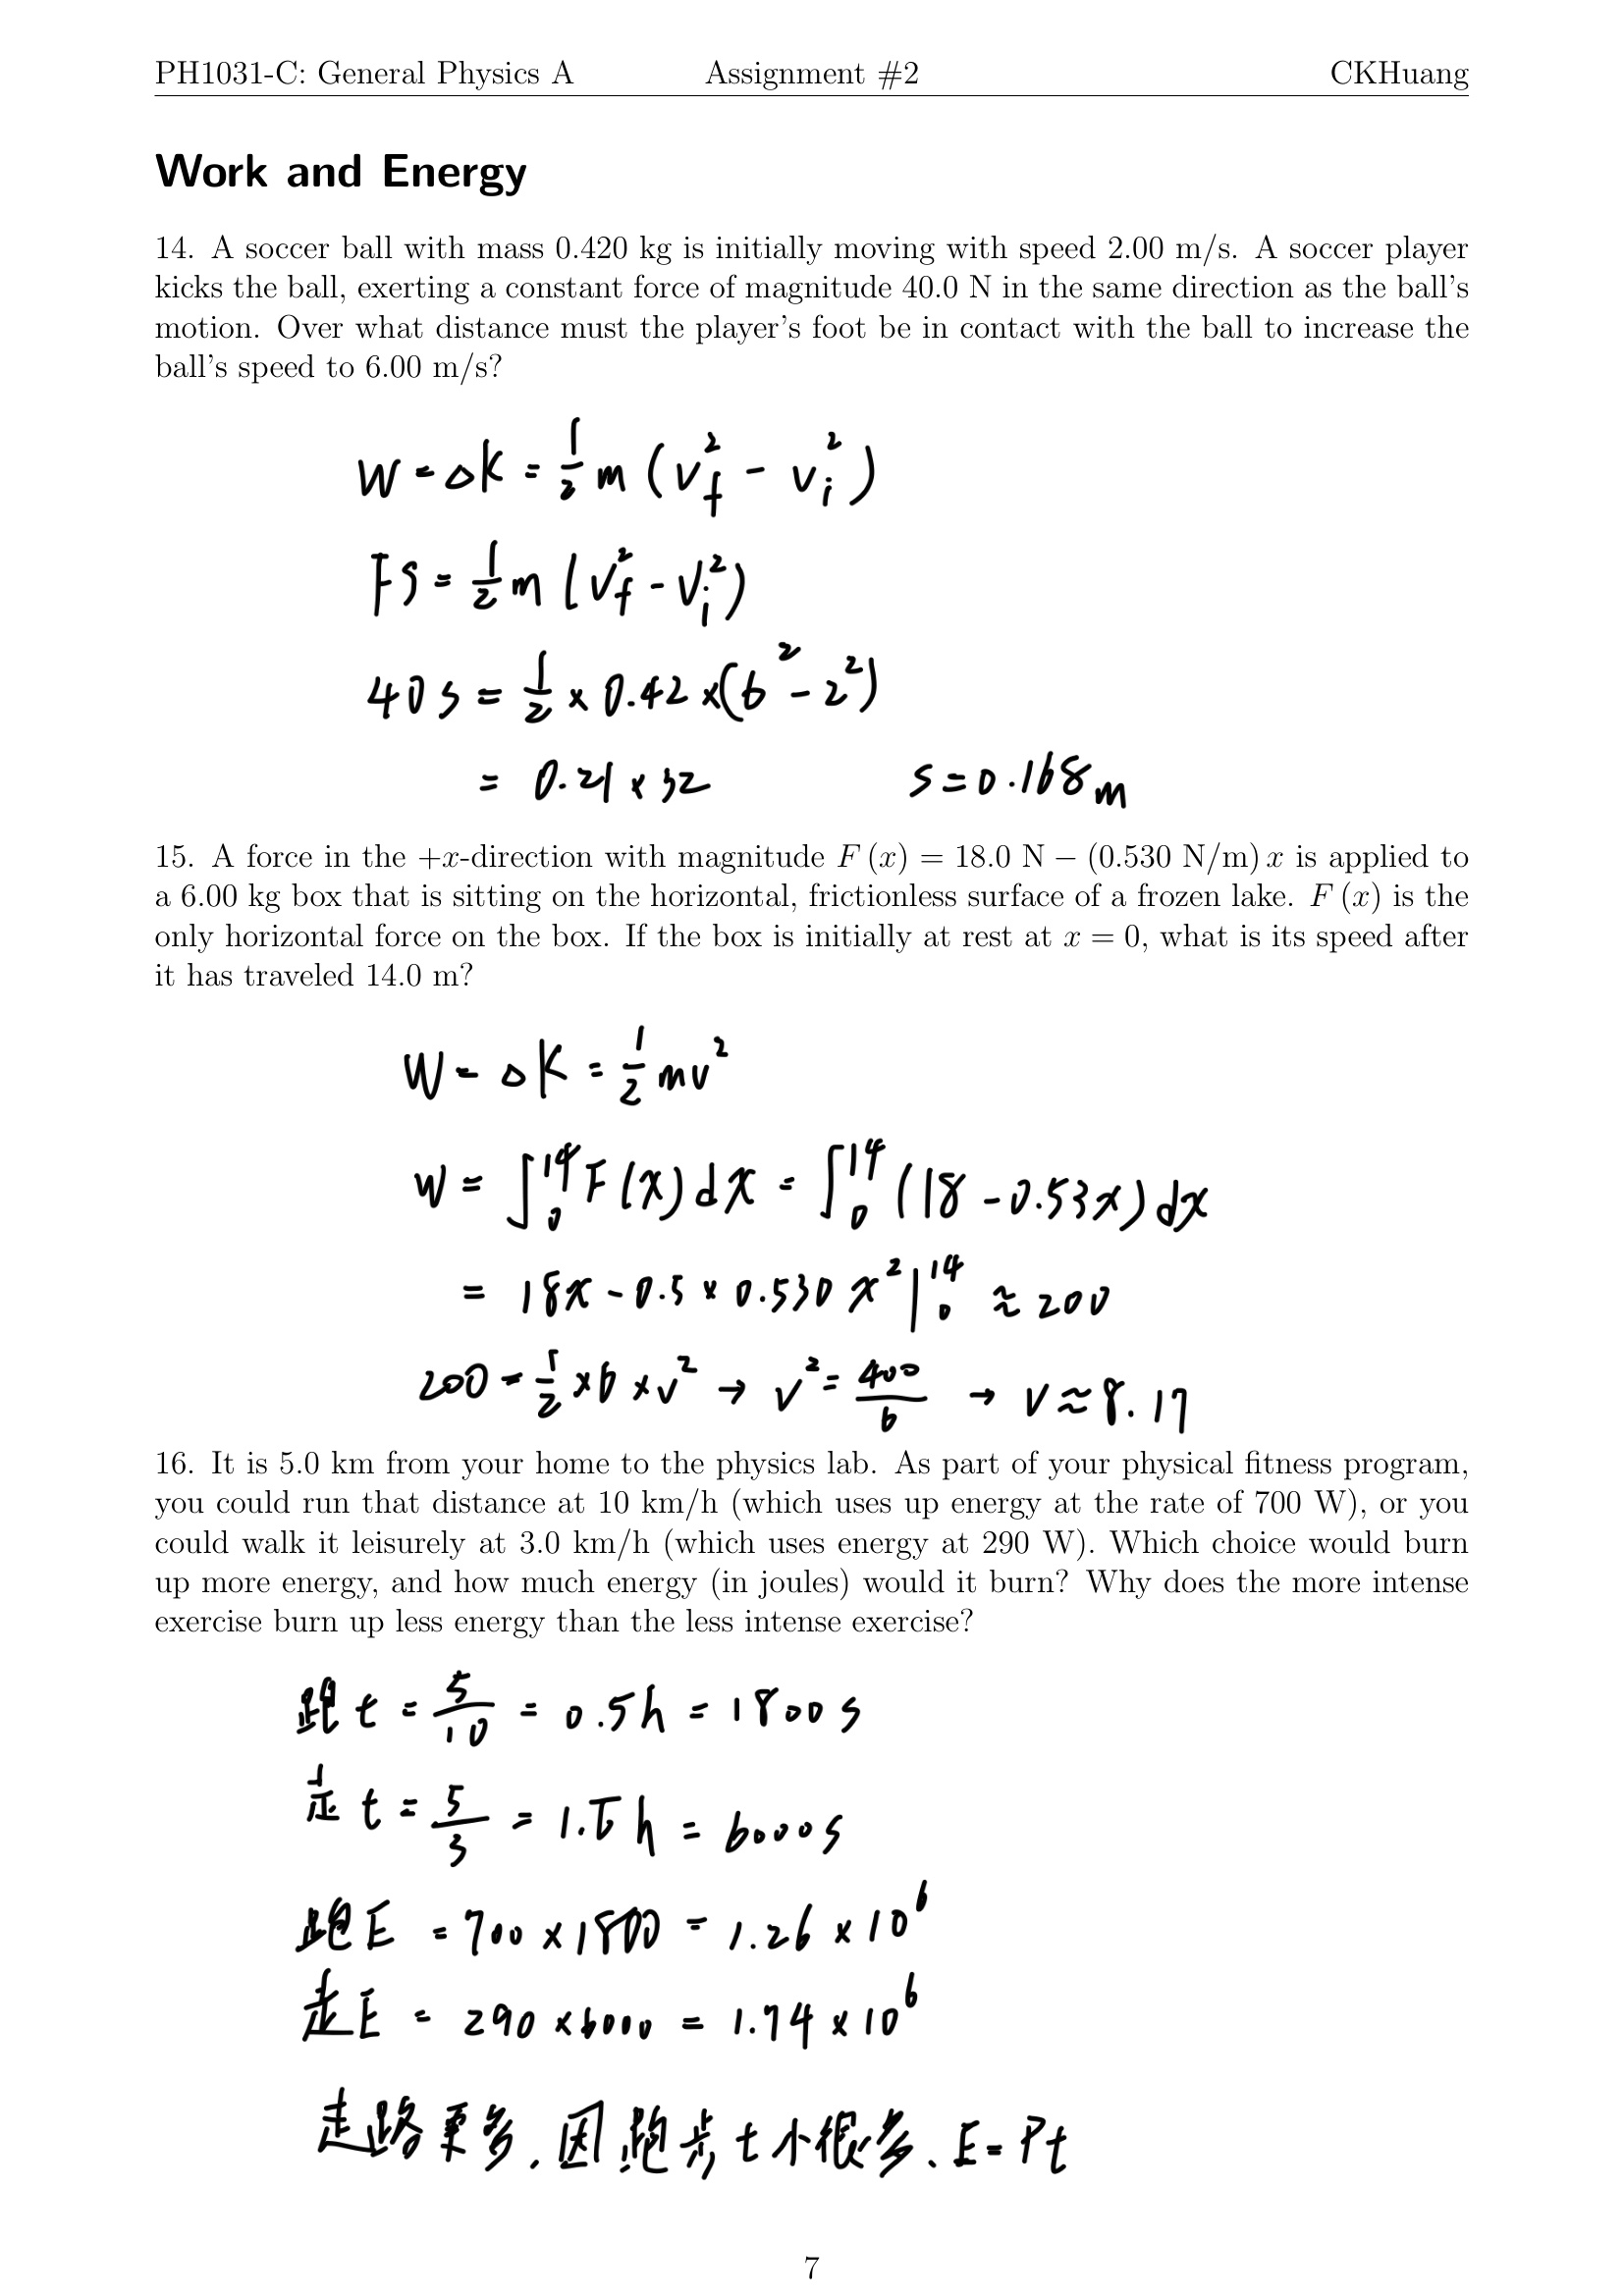 PH1031-C: General Physics A Assignment #2 CKHuang
Work and Energy
14. A soccer ball with mass 0.420 kg is initially moving with speed 2.00 m/s. A soccer player
kicks the ball, exerting a constant force of magnitude 40.0 N in the same direction as the ball's
motion. Over what distance must the player's foot be in contact with the ball to increase the
ball's speed to 6.00 m/s?
W = ΔK = 1/2 m (v_f^2 - v_i^2)
FS = 1/2 m (v_f^2 - v_i^2)
40 s = 1/2 × 0.42 × (6^2 - 2^2)
= 0.21 × 32 s = 0.168 m
15. A force in the +x-direction with magnitude F (x) = 18.0 N − (0.530 N/m) x is applied to
a 6.00 kg box that is sitting on the horizontal, frictionless surface of a frozen lake. F (x) is the
only horizontal force on the box. If the box is initially at rest at x = 0, what is its speed after
it has traveled 14.0 m?
W = ΔK = 1/2 mv^2
W = ∫_0^14 F(x) dx = ∫_0^14 (18 - 0.53x) dx
= 18x - 0.5 × 0.530 x^2 |_0^14 ≈ 200
200 = 1/2 × 6 × v^2 → v^2 = 400/6 → v ≈ 8.17
16. It is 5.0 km from your home to the physics lab. As part of your physical fitness program,
you could run that distance at 10 km/h (which uses up energy at the rate of 700 W), or you
could walk it leisurely at 3.0 km/h (which uses energy at 290 W). Which choice would burn
up more energy, and how much energy (in joules) would it burn? Why does the more intense
exercise burn up less energy than the less intense exercise?
跑 t = 5/10 = 0.5 h = 1800 s
走 t = 5/3 = 1.6̅ h = 6000 s
跑 E = 700 × 1800 = 1.26 × 10^6
走 E = 290 × 6000 = 1.74 × 10^6
走路更多, 因跑步 t 小很多、E = Pt
7